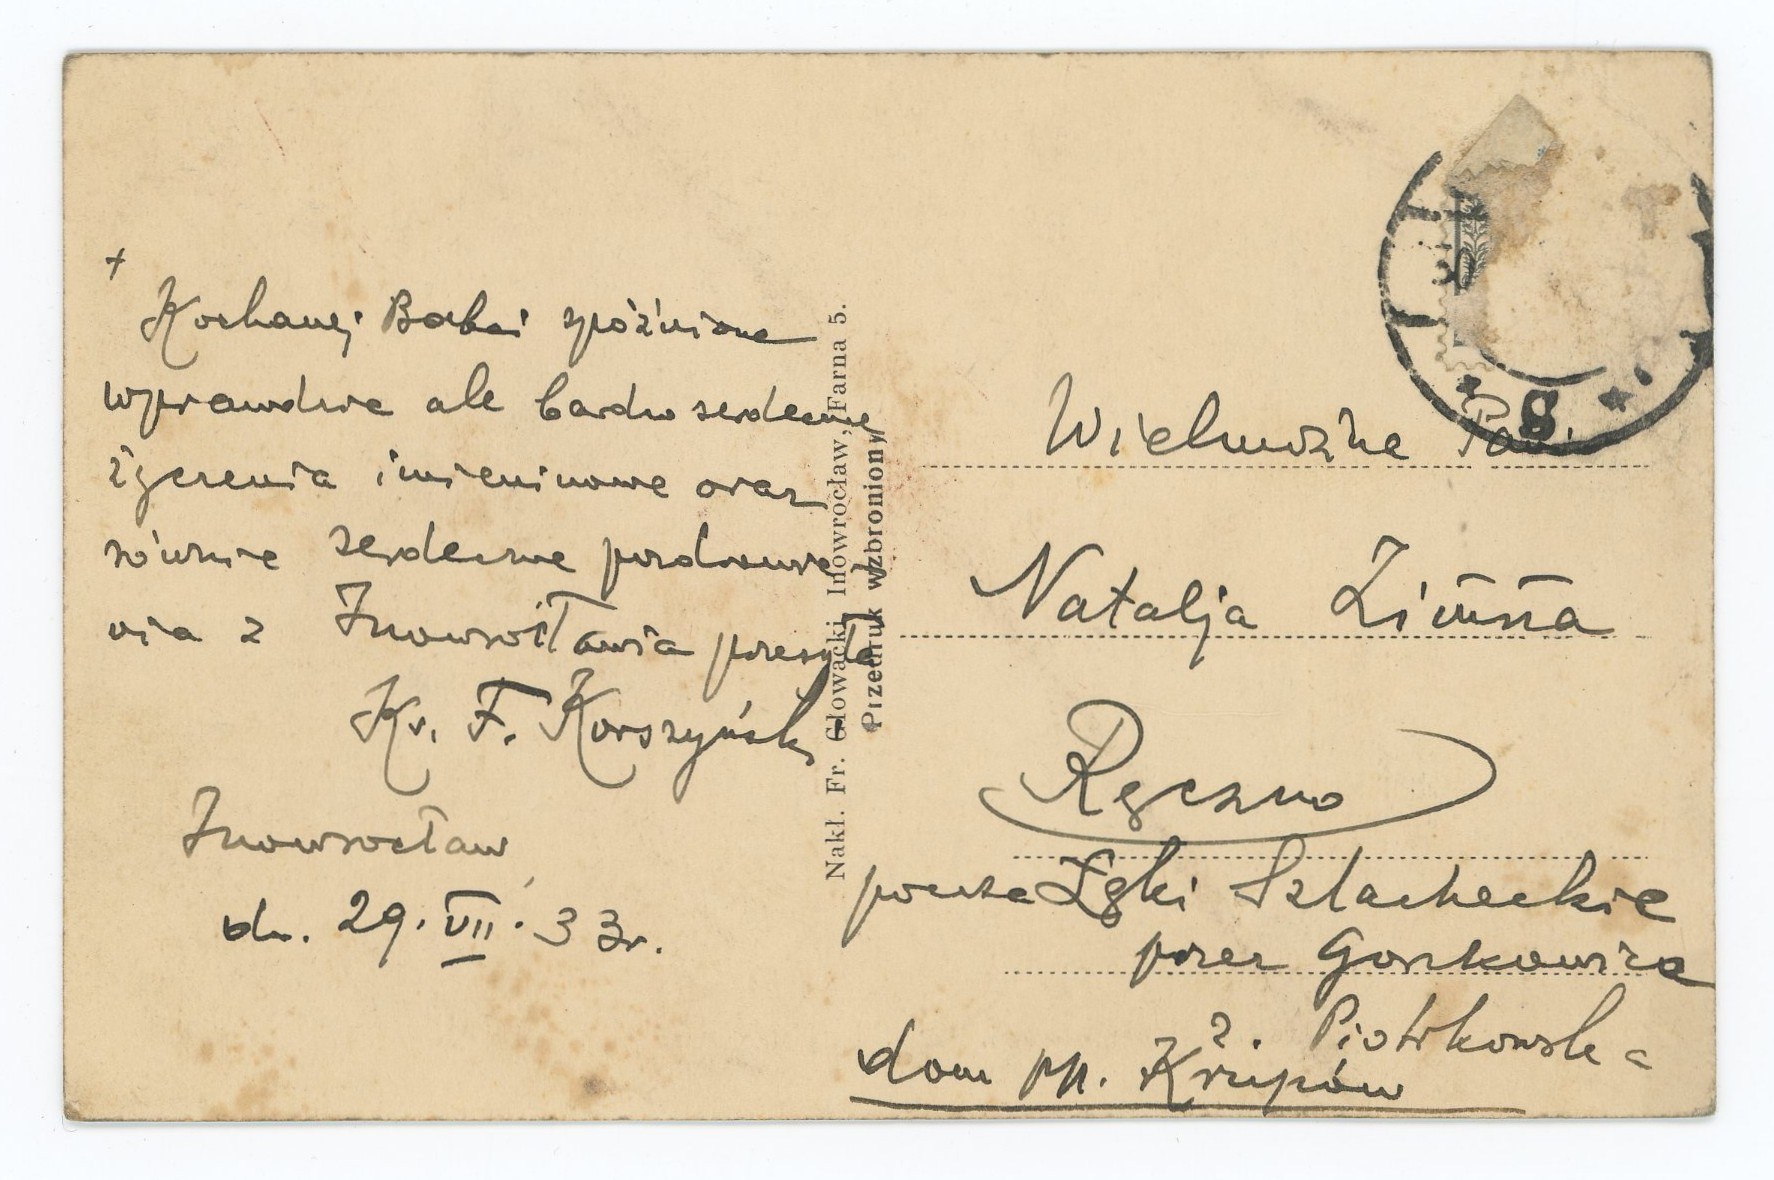 +
Kochanej Babci spóźnione
wprawdzie ale bardzo serdeczne
życzenia imieninowe oraz
równie serdeczne pozdrowie-
nia z Inowrocławia przesyła
Ks. F. Korszyński
Inowrocław
dn. 29. VII. 33 r.
Nakł. Fr. Głowacki Inowrocław, Farna 5.
Przedruk wzbroniony
S
Wielmożna Pani
Natalja Zimna
Ręczno
poczta Łęki Szlacheckie
przez Gorzkowice
z. Piotrkowska
dom pp. Krupów